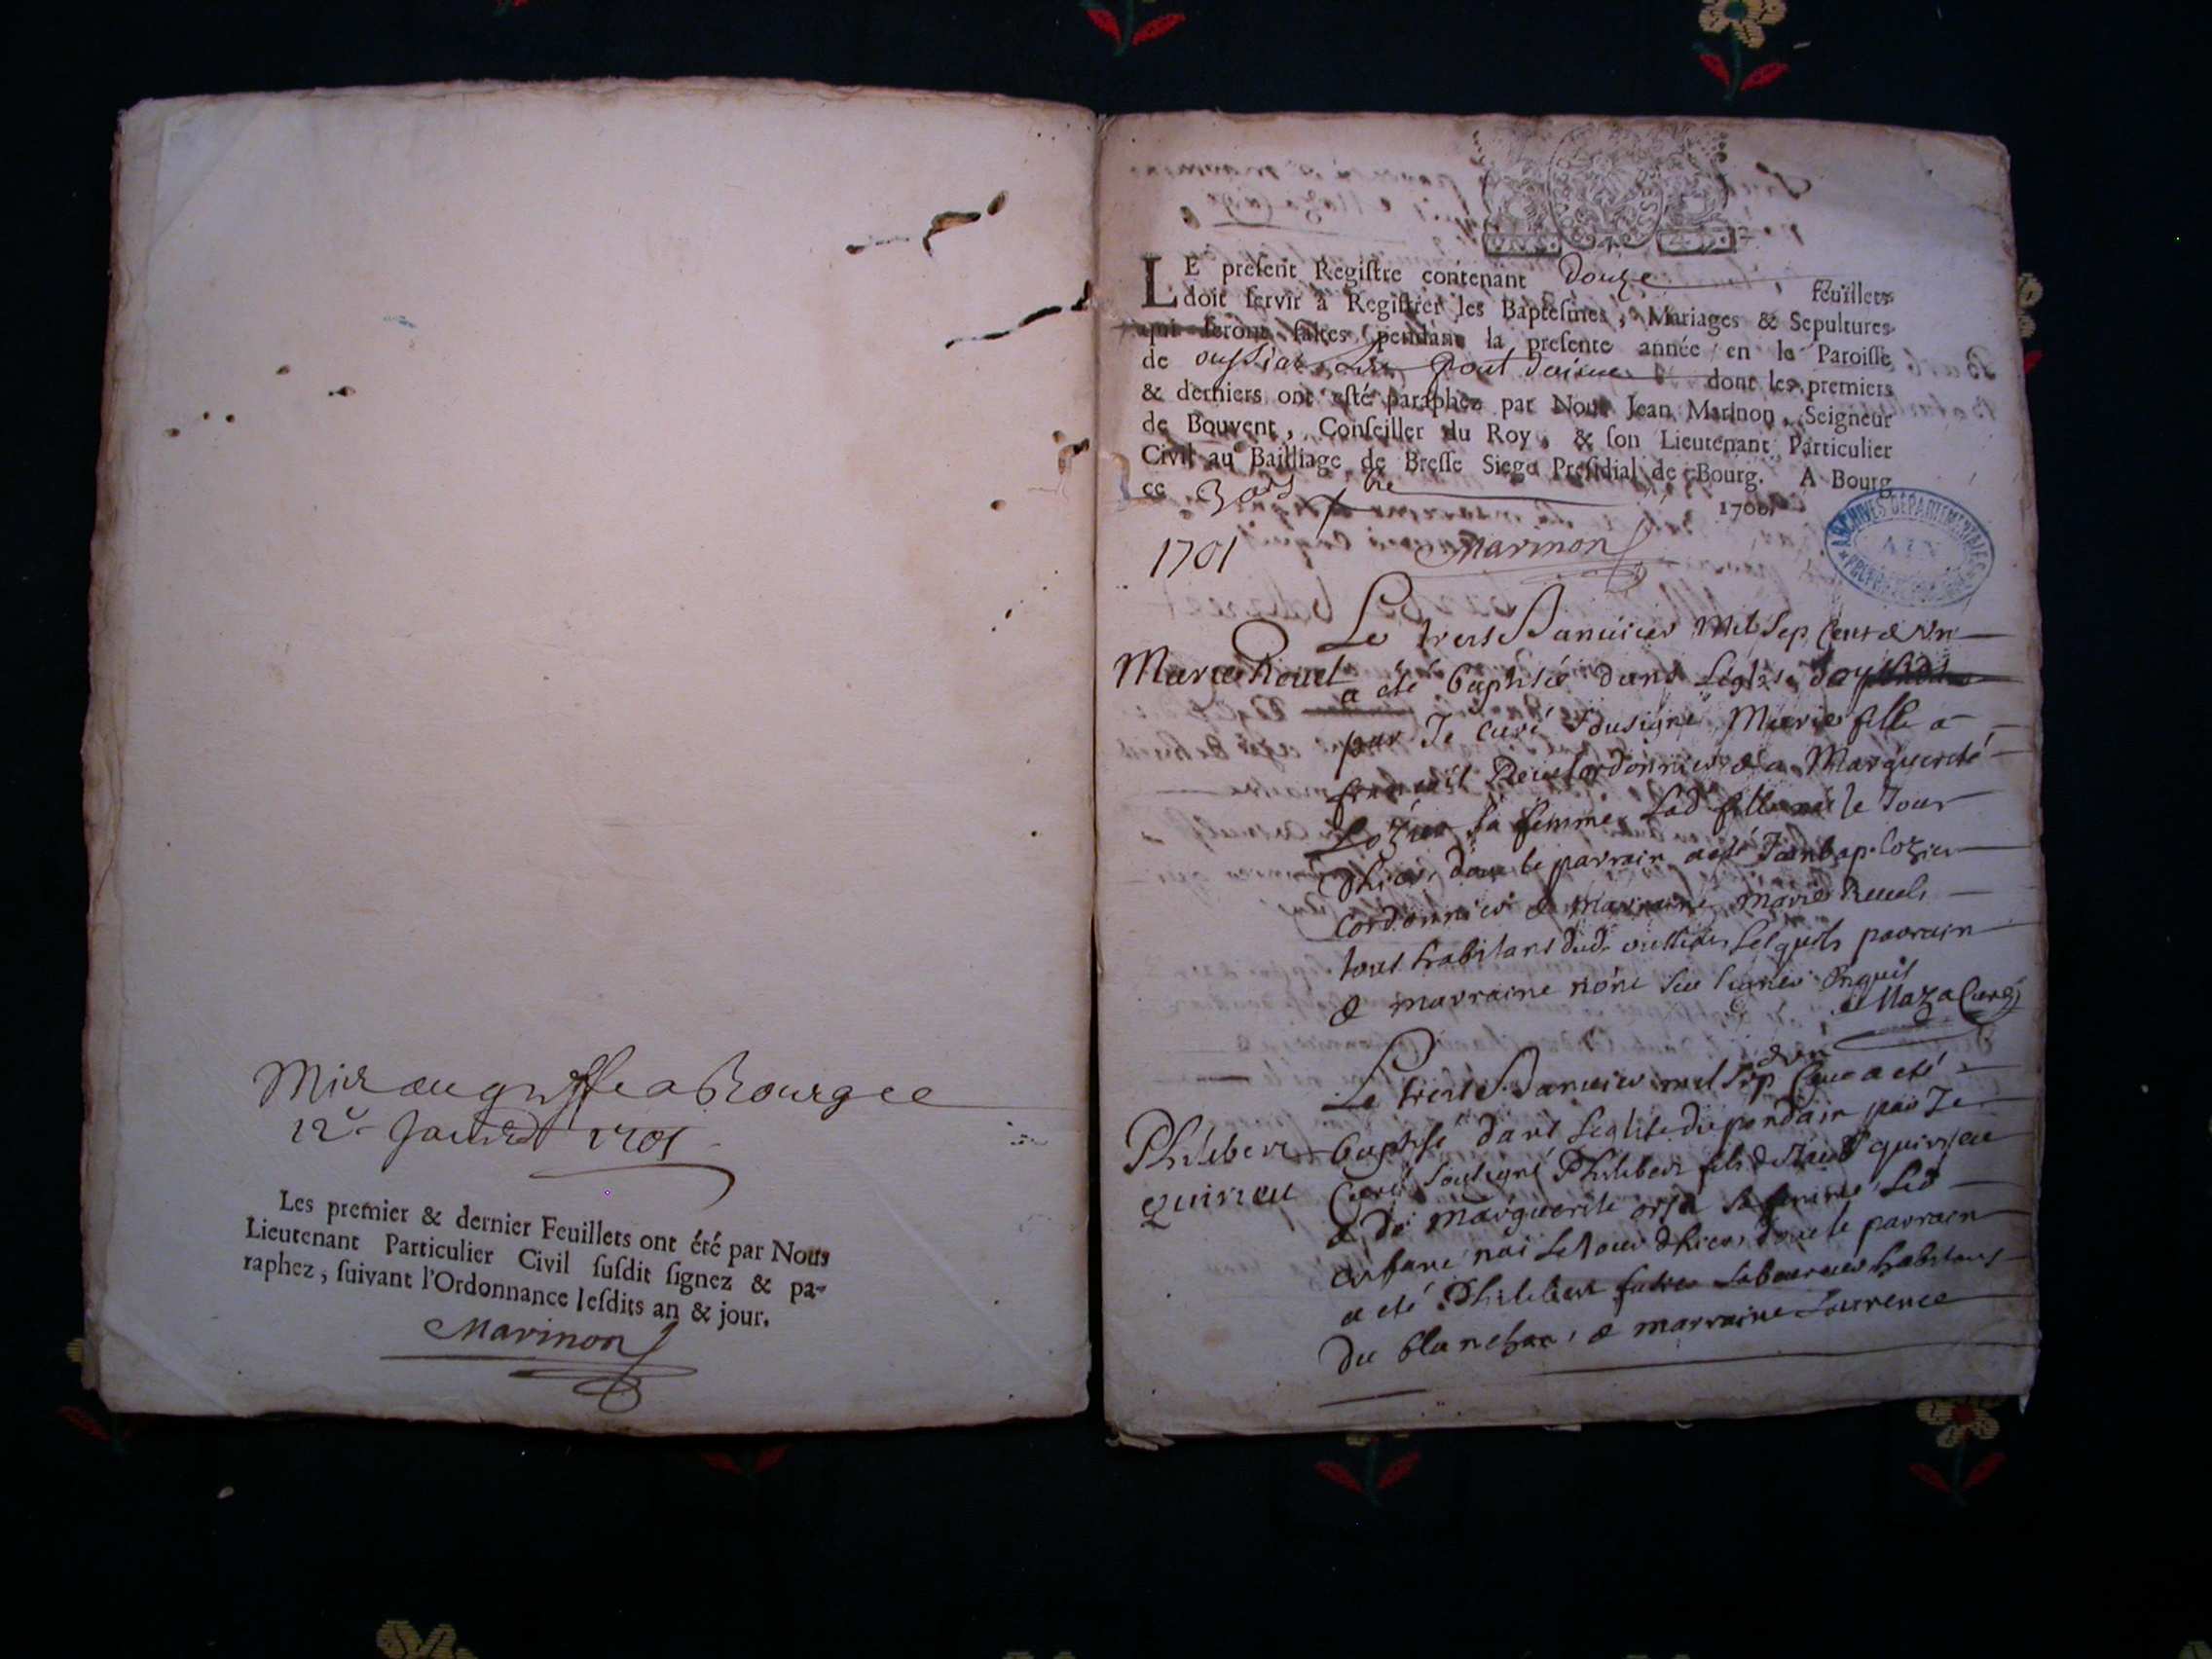 Mis au greffe a Bourg ce
12e Janvier 1701
Les premier & dernier Feuillets ont été par Nous
Lieutenant Particulier Civil ſuſdit ſignez & pa-
raphez, ſuivant l'Ordonnance leſdits an & jour.
Marinon
LE preſent Regiſtre contenant douze Feuillets
doit ſervir à Regiſtrer les Bapteſmes, Mariages & Sepultures
qui ſeront faites pendant la preſente année en la Paroiſſe
de oussiat pont dont les premiers
& derniers ont eſté paraphez par Nous Jean Marinon, Seigneur
de Bouvent, Conſeiller du Roy, & ſon Lieutenant Particulier
Civil au Bailliage de Breſſe Siege Preſidial de Bourg. A Bourg
ce 1700.
1701 Marinon
ARCHIVES DÉPARTEMENTALES AIN
Le trois Januier mil sep cent & vn
Marie a eté baptisée dans leglise
par Je curé sousigné Marie fille a
françois cordonnier & a Marguerite
Lozier sa femme lad fille née le Jour
dhier, dont le parrain a eté Jean bap. lozier
cordonnier & marraine marie
tous habitans dud. lesquels parrain
& marraine nont seu signer enquis
Maza Curé
& vn
Le trois Januier mil sep cent a eté
Philibert baptisé dans leglise du pondain par Je
quirieu Curé sousigné Philibert fils de quirieu
& de marguerite sa femme led
enfant nai le Jour dhier, dont le parrain
a eté Philibert laboureur habitans
du blanchon, & marraine Laurence